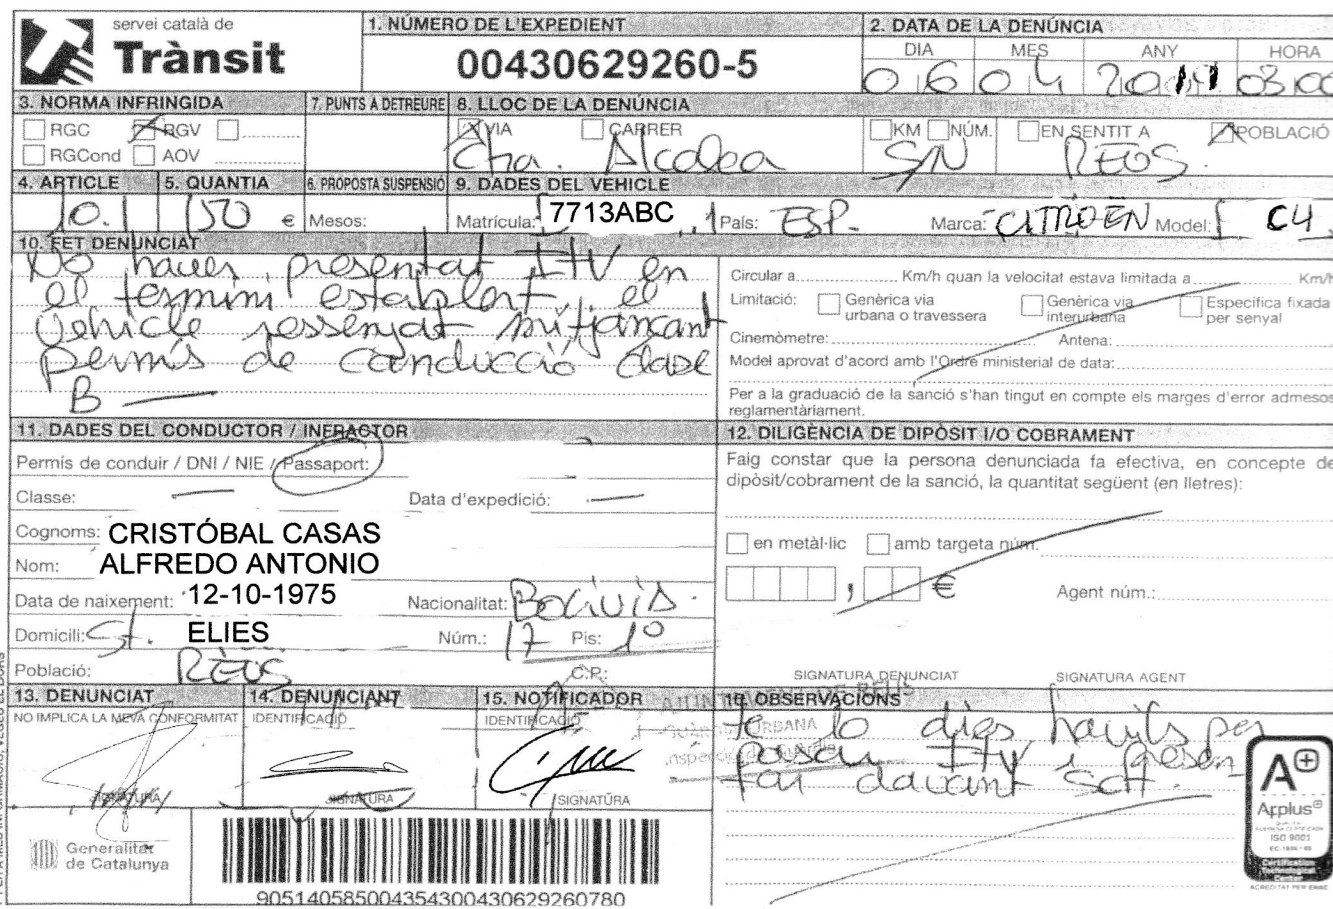 servei català de
Trànsit
1. NÚMERO DE L'EXPEDIENT
00430629260-5
2. DATA DE LA DENÚNCIA
DIA MES ANY HORA
06 04 2011 0300
3. NORMA INFRINGIDA
RGC RGV
RGCond AOV
7. PUNTS A DETREURE
8. LLOC DE LA DENÚNCIA
VIA CARRER KM NÚM. EN SENTIT A POBLACIÓ
Ctra. Alcolea S/N REUS.
4. ARTICLE 5. QUANTIA 6. PROPOSTA SUSPENSIÓ 9. DADES DEL VEHICLE
10.1 150 € Mesos: Matrícula: 7713ABC País: ESP. Marca: CITROEN Model: C4
10. FET DENUNCIAT
No haver presentat ITV en
el termini establert, el
vehicle ressenyat mitjançant
permís de conducció clase
B —
Circular a Km/h quan la velocitat estava limitada a Km/h
Limitació: Genèrica via urbana o travessera Genèrica via interurbana Específica fixada per senyal
Cinemòmetre: Antena:
Model aprovat d'acord amb l'Ordre ministerial de data:
Per a la graduació de la sanció s'han tingut en compte els marges d'error admesos
reglamentàriament.
11. DADES DEL CONDUCTOR / INFRACTOR
Permís de conduir / DNI / NIE / Passaport:
Classe: — Data d'expedició: —
Cognoms: CRISTÓBAL CASAS
Nom: ALFREDO ANTONIO
Data de naixement: 12-10-1975 Nacionalitat: Bolivia.
Domicili: St. ELIES Núm.: 17 Pis: 1º
Població: REUS C.P.:
12. DILIGÈNCIA DE DIPÒSIT I/O COBRAMENT
Faig constar que la persona denunciada fa efectiva, en concepte de
dipòsit/cobrament de la sanció, la quantitat següent (en lletres):
en metàl·lic amb targeta núm.
, € Agent núm.:
SIGNATURA DENUNCIAT SIGNATURA AGENT
13. DENUNCIAT 14. DENUNCIANT 15. NOTIFICADOR
NO IMPLICA LA MEVA CONFORMITAT IDENTIFICACIÓ IDENTIFICACIÓ
SIGNATURA SIGNATURA SIGNATURA
16. OBSERVACIONS
10 dies hàvils per
pasar ITV i presen
tar davant SCT.
Generalitat
de Catalunya
905140585004354300430629260780
PER A MÉS INFORMACIÓ, VEGEU EL DORS
A+
Applus⊕
ISO 9001
Certification
Technological
Center
ACREDITAT PER ENAC